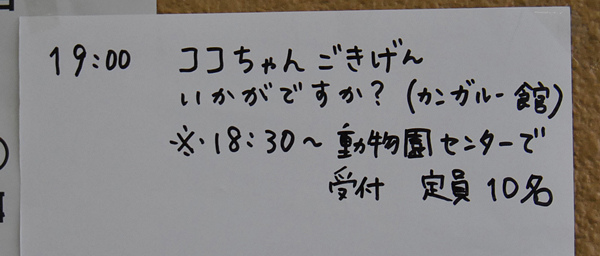 19:00 ココちゃんごきげん
いかがですか?(カンガルー館)
※・18:30～動物園センターで
受付 定員10名